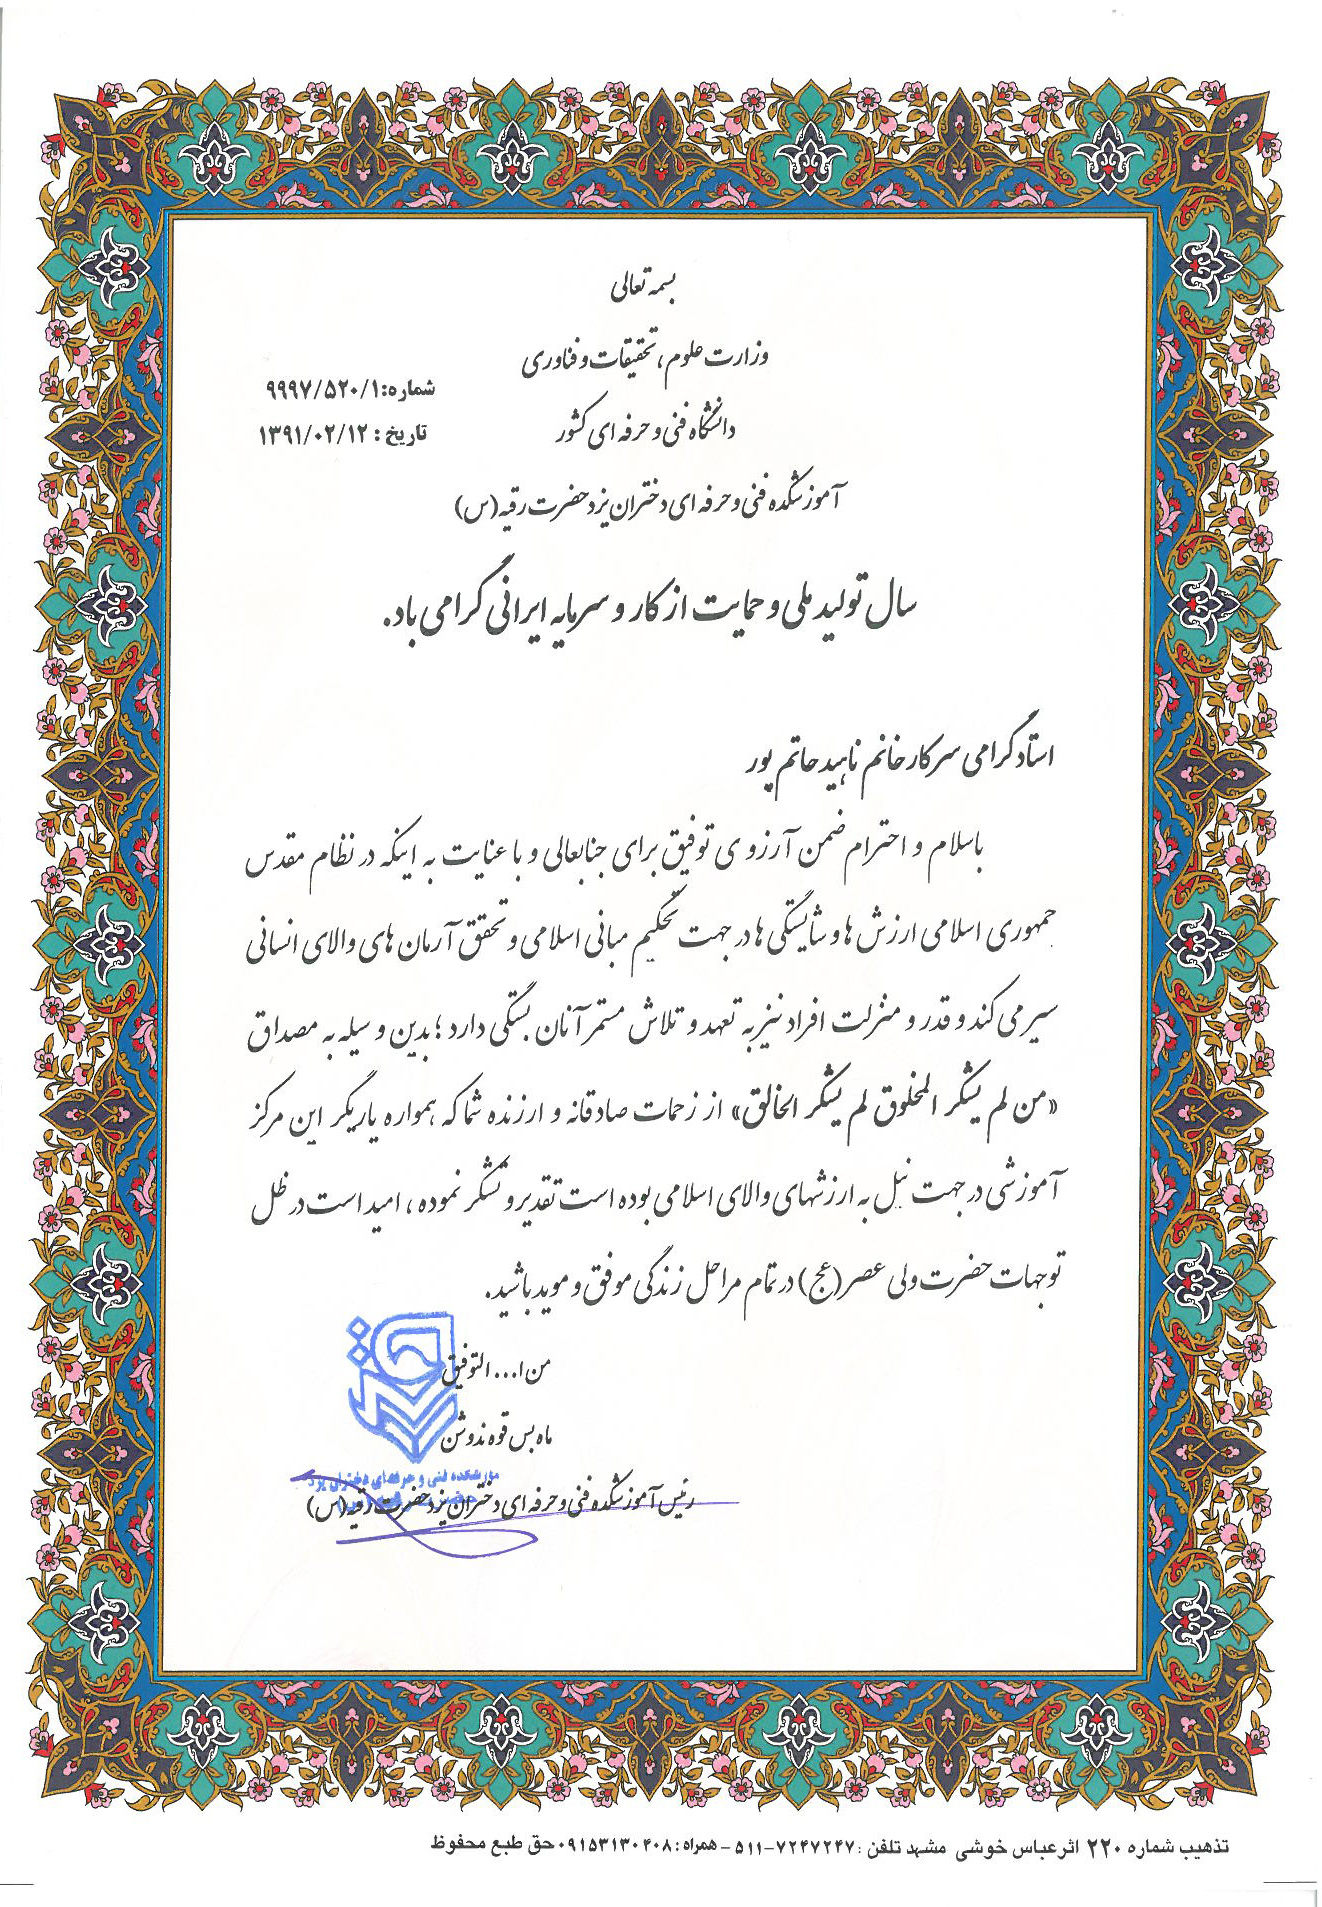 بسمه تعالی
وزارت علوم، تحقیقات و فناوری
شماره: ۹۹۹۷/۵۲۰/۱
دانشگاه فنی و حرفه ای کشور
تاریخ : ۱۳۹۱/۰۲/۱۲
آموزشکده فنی و حرفه ای دختران یزد حضرت رقیه (س)
سال تولید ملی و حمایت از کار و سرمایه ایرانی گرامی باد.
استاد گرامی سرکار خانم ناهید حاتم پور
باسلام و احترام ضمن آرزوی توفیق برای جنابعالی و با عنایت به اینکه در نظام مقدس
جمهوری اسلامی ارزش ها و شایستگی ها در جهت تحکیم مبانی اسلامی و تحقق آرمان های والای انسانی
سیر می کند و قدر و منزلت افراد نیز به تعهد و تلاش مستمر آنان بستگی دارد ؛ بدین وسیله به مصداق
«من لم یشکر المخلوق لم یشکر الخالق» از زحمات صادقانه و ارزنده شما که همواره یاریگر این مرکز
آموزشی در جهت نیل به ارزشهای والای اسلامی بوده است تقدیر و تشکر نموده ، امید است در ظل
توجهات حضرت ولی عصر (عج) در تمام مراحل زندگی موفق و موید باشید.
من ا... التوفیق
ماه بس قوه ندوشن
موزشکده فنی و حرفه‌ای دختران یزد
رئیس آموزشکده فنی و حرفه ای دختران یزد حضرت رقیه (س)
تذهیب شماره ۲۲۰ اثر عباس خوشی مشهد تلفن : ۷۲۴۷۲۴۷-۵۱۱ - همراه : ۰۹۱۵۳۱۳۰۴۰۸ حق طبع محفوظ